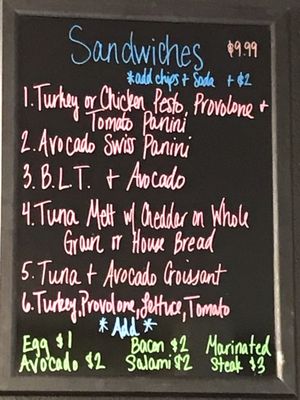 Sandwiches $9.99
*add chips + Soda + $2
1. Turkey or Chicken Pesto, Provolone +
Tomato Panini
2. Avocado Swiss Panini
3. B.L.T. + Avocado
4. Tuna Melt w/ Cheddar on Whole
Grain or House Bread
5. Tuna + Avocado Croissant
6. Turkey, Provolone, Lettuce, Tomato
*Add*
Egg $1 Bacon $2 Marinated
Avocado $2 Salami $2 Steak $3